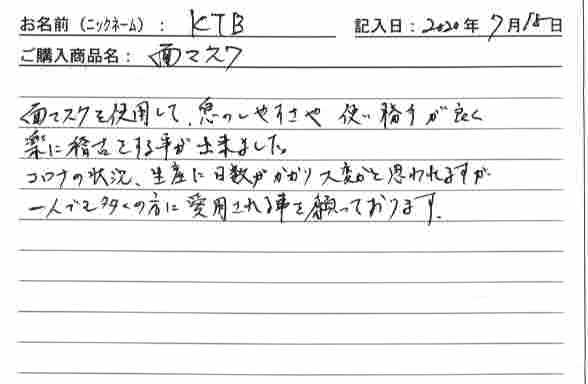 お名前（ニックネーム）： KTB 記入日：2020年7月18日
ご購入商品名： 面マスク
面マスクを使用して、息のしやすさや 使い勝手が良く
楽に稽古をする事が出来ました。
コロナの状況、生産に日数がかかり大変かと思われますが
一人でも多くの方に愛用される事を願っております。